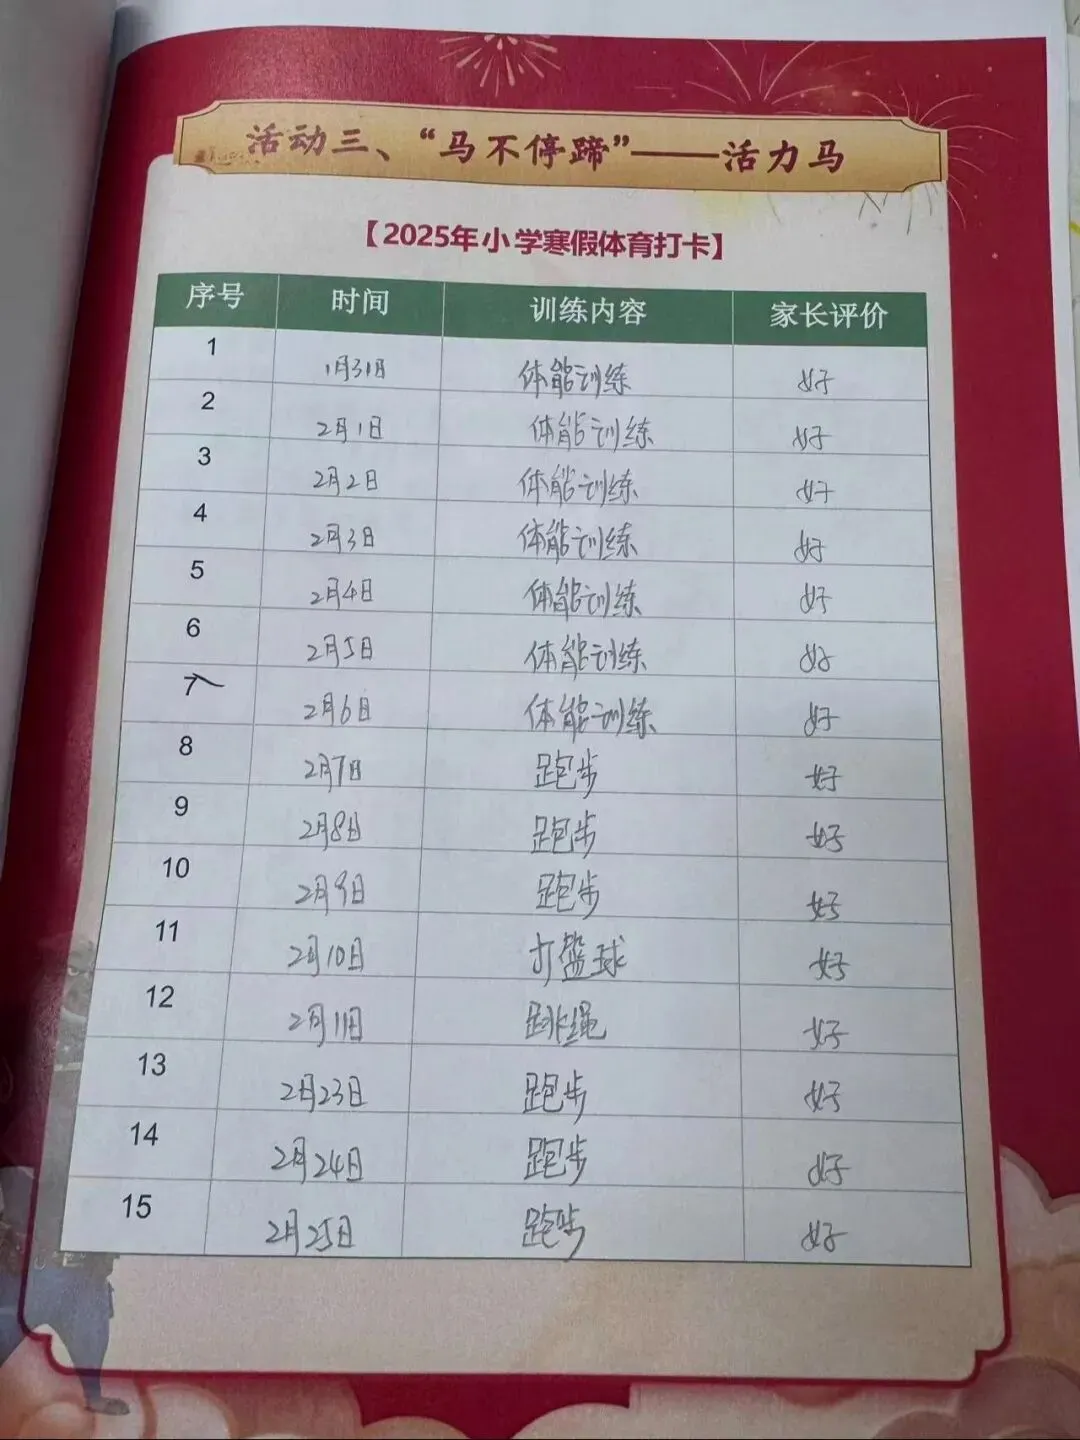 活动三、“马不停蹄”——活力马
【2025年小学寒假体育打卡】
序号 时间 训练内容 家长评价
1 1月31日 体能训练 好
2 2月1日 体能训练 好
3 2月2日 体能训练 好
4 2月3日 体能训练 好
5 2月4日 体能训练 好
6 2月5日 体能训练 好
7 2月6日 体能训练 好
8 2月7日 跑步 好
9 2月8日 跑步 好
10 2月9日 跑步 好
11 2月10日 打篮球 好
12 2月11日 跳绳 好
13 2月23日 跑步 好
14 2月24日 跑步 好
15 2月25日 跑步 好